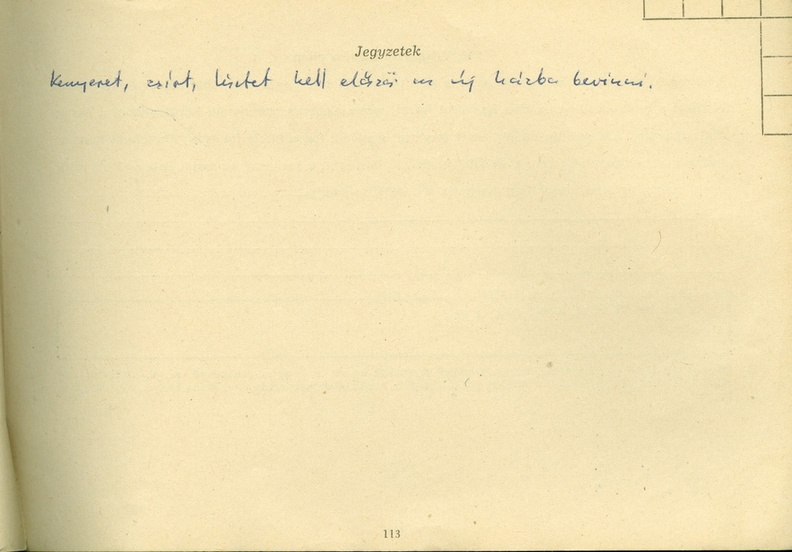 Jegyzetek
Kenyeret, zsírt, lisztet kell először az új házba bevinni.
113